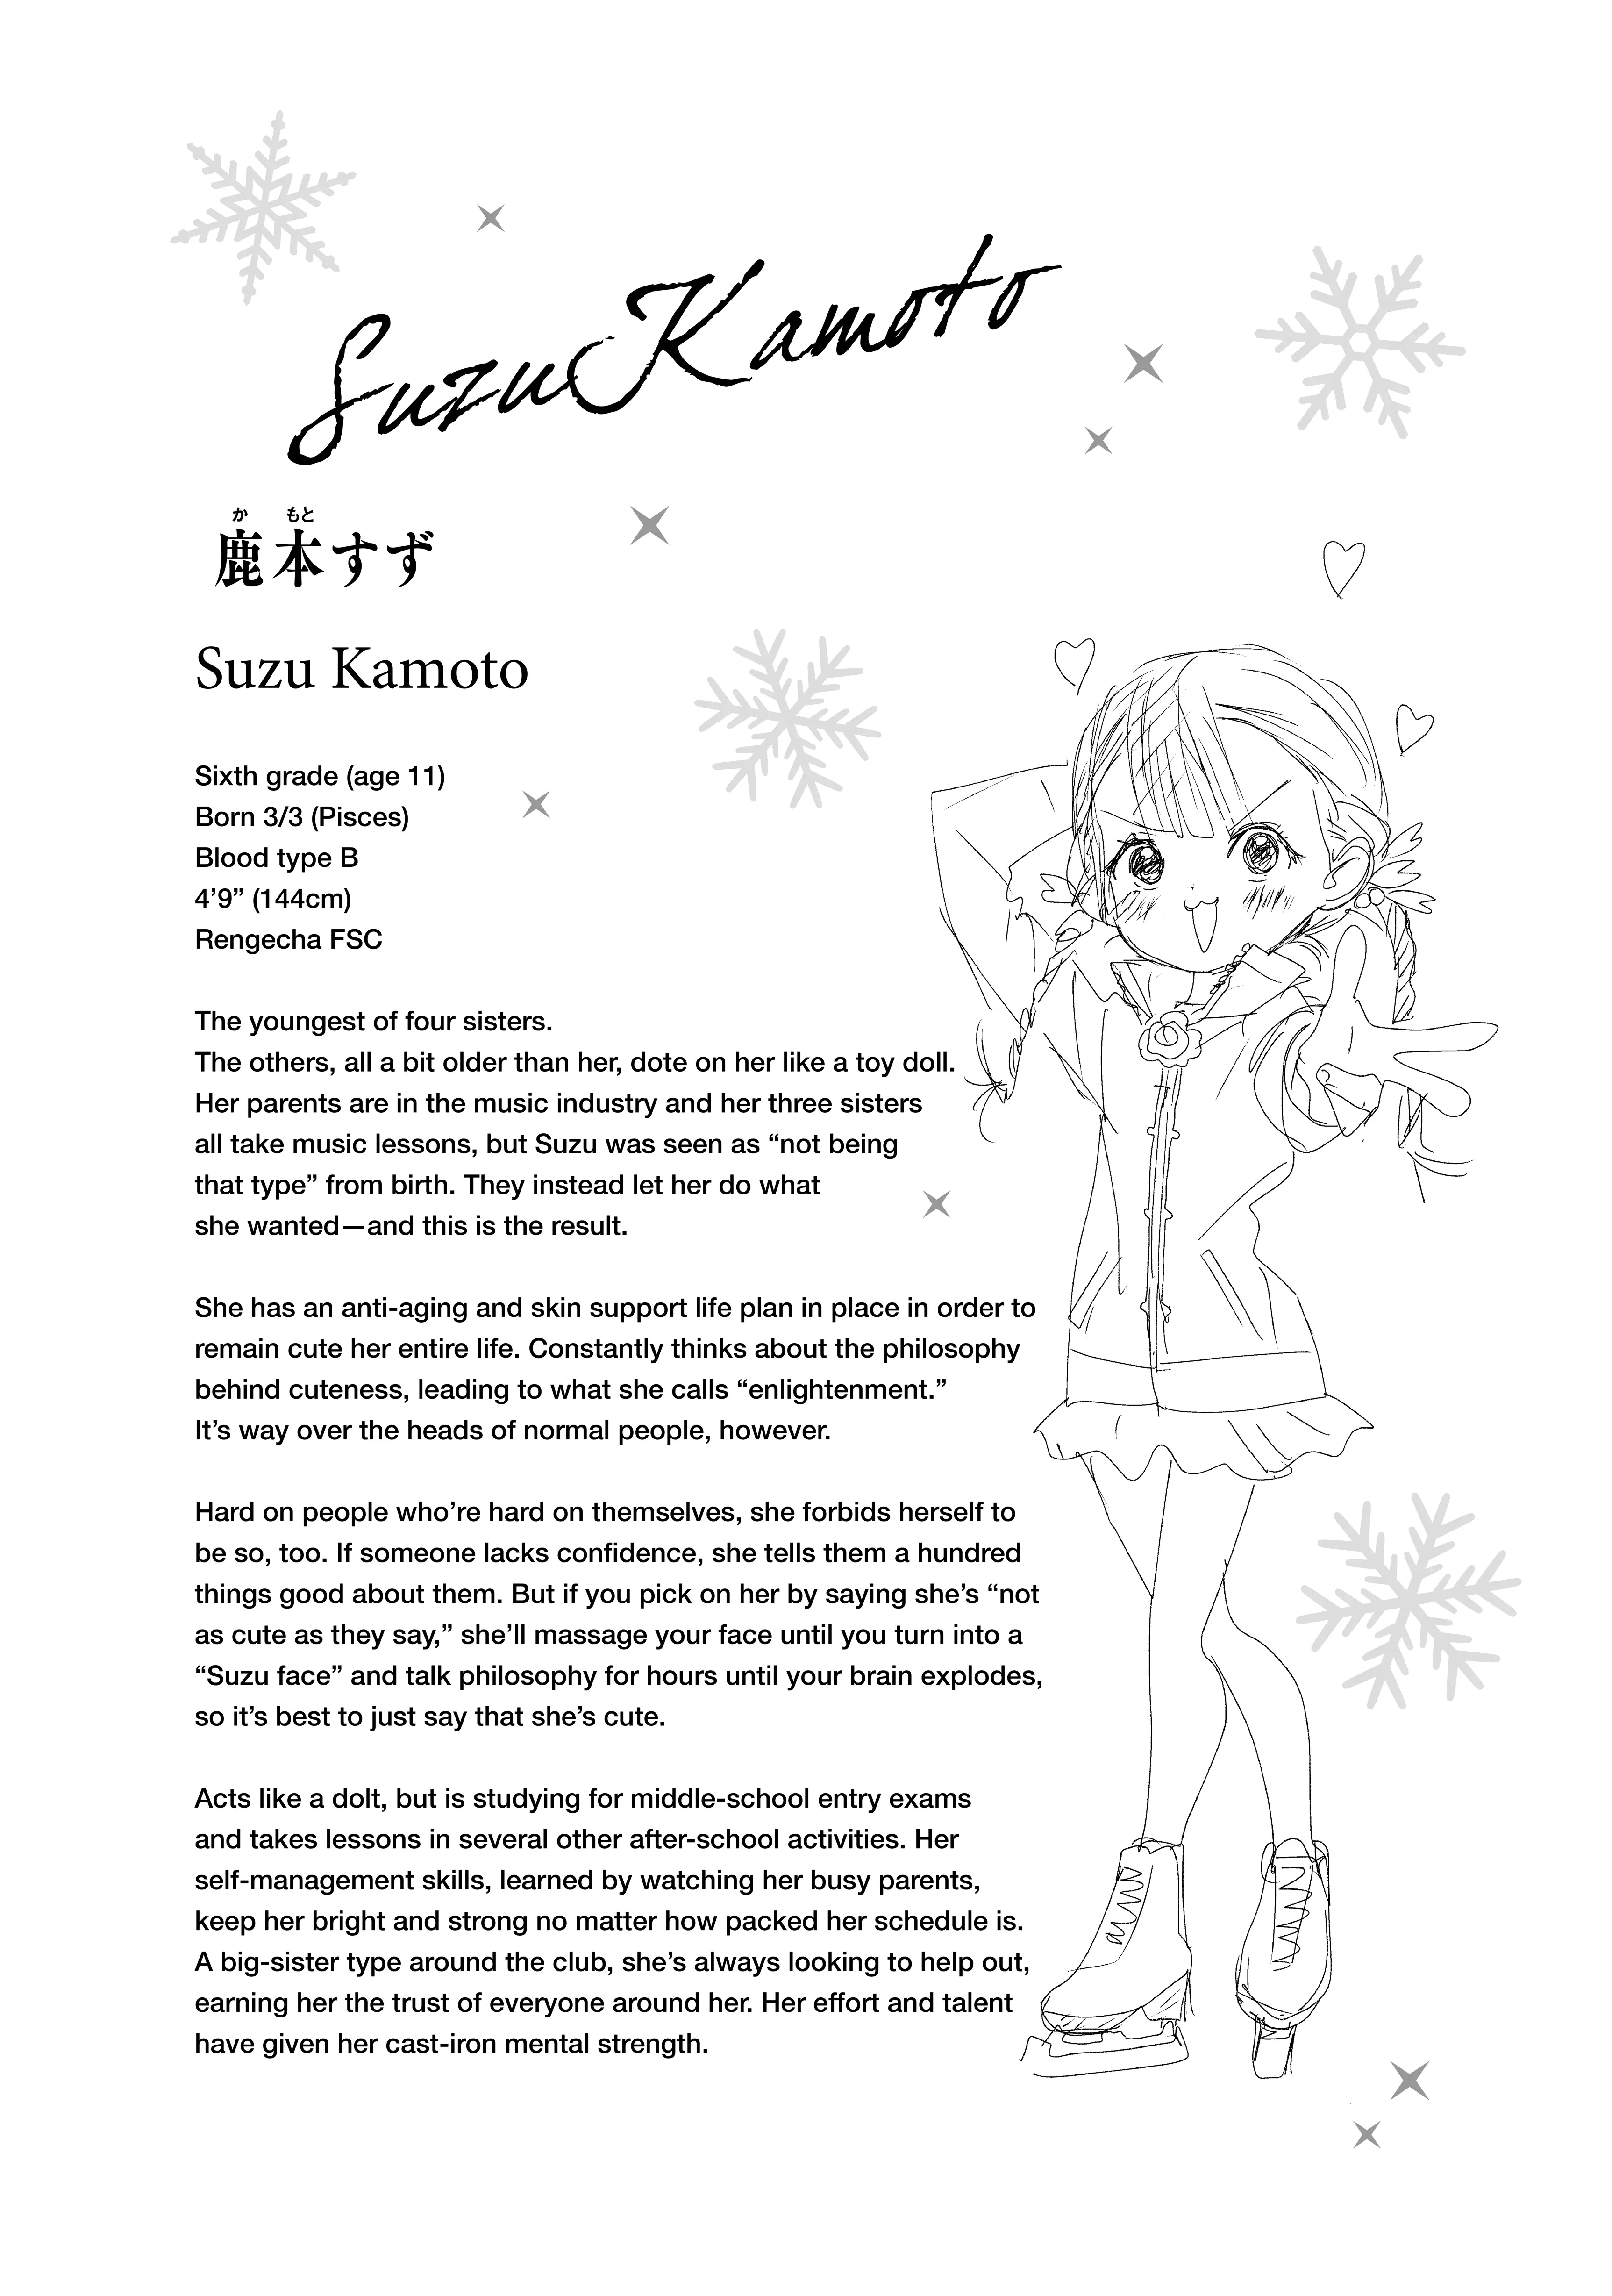 Suzu Kamoto
か もと
鹿本すず
Suzu Kamoto
Sixth grade (age 11)
Born 3/3 (Pisces)
Blood type B
4’9” (144cm)
Rengecha FSC
The youngest of four sisters.
The others, all a bit older than her, dote on her like a toy doll.
Her parents are in the music industry and her three sisters
all take music lessons, but Suzu was seen as “not being
that type” from birth. They instead let her do what
she wanted—and this is the result.
She has an anti-aging and skin support life plan in place in order to
remain cute her entire life. Constantly thinks about the philosophy
behind cuteness, leading to what she calls “enlightenment.”
It’s way over the heads of normal people, however.
Hard on people who’re hard on themselves, she forbids herself to
be so, too. If someone lacks confidence, she tells them a hundred
things good about them. But if you pick on her by saying she’s “not
as cute as they say,” she’ll massage your face until you turn into a
“Suzu face” and talk philosophy for hours until your brain explodes,
so it’s best to just say that she’s cute.
Acts like a dolt, but is studying for middle-school entry exams
and takes lessons in several other after-school activities. Her
self-management skills, learned by watching her busy parents,
keep her bright and strong no matter how packed her schedule is.
A big-sister type around the club, she’s always looking to help out,
earning her the trust of everyone around her. Her effort and talent
have given her cast-iron mental strength.